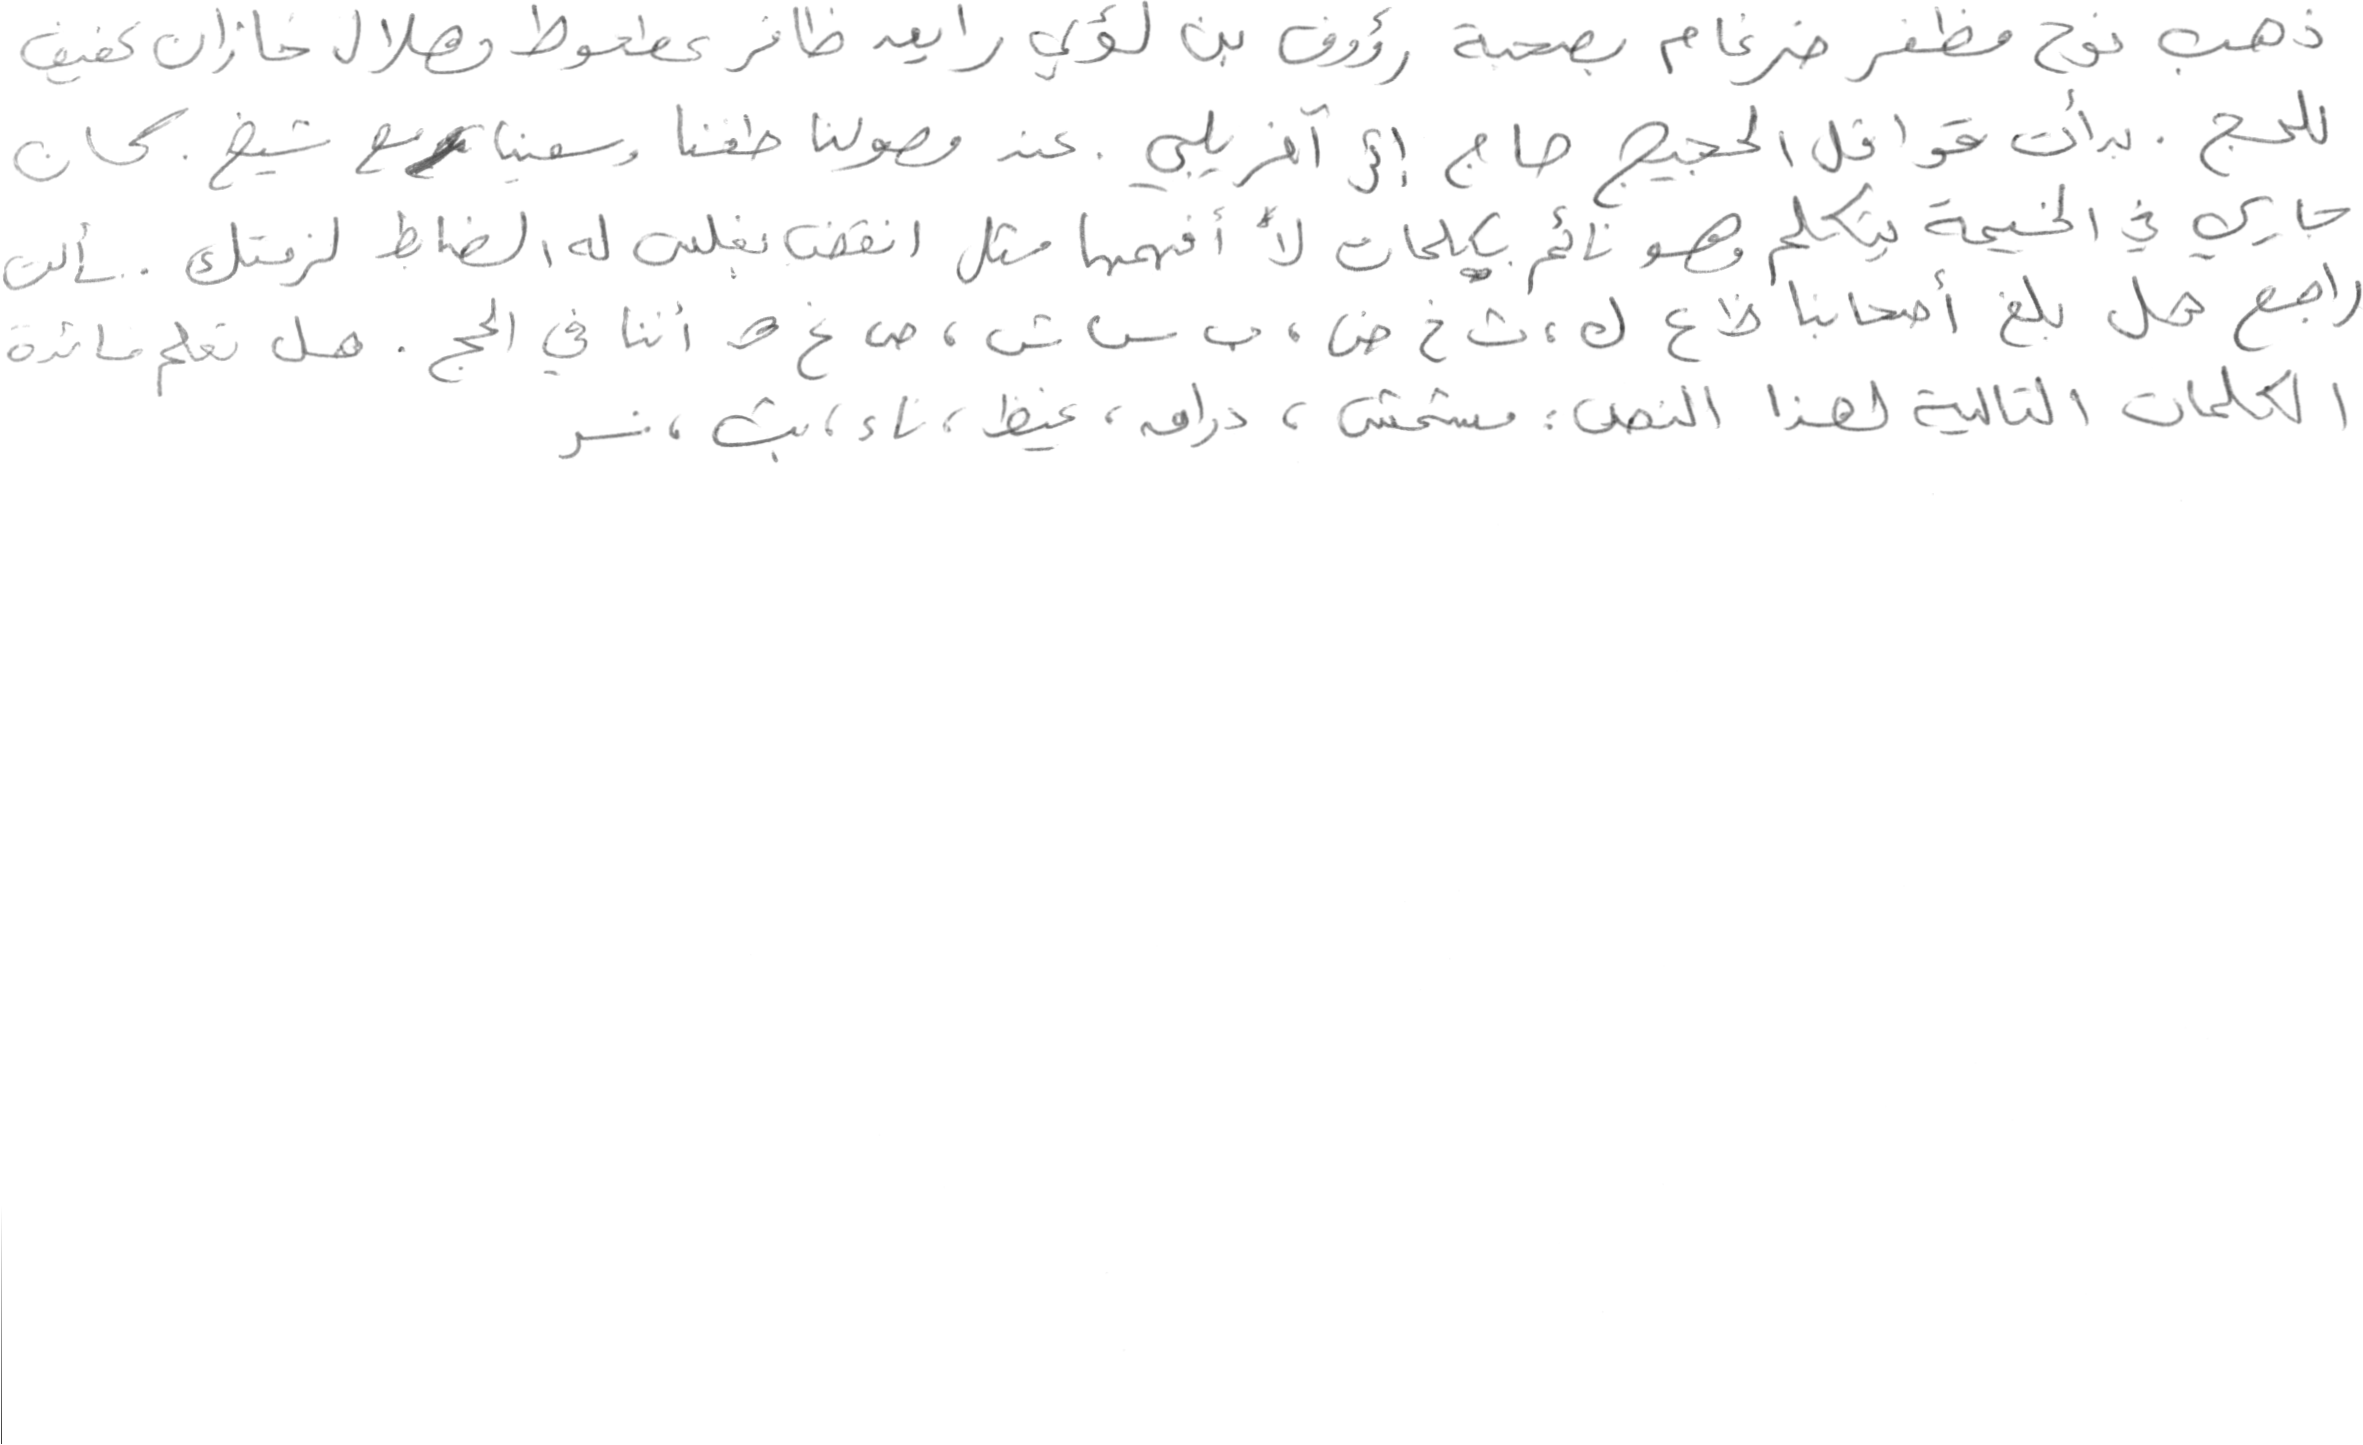 ذهب نوح مظفر ضرغام بصحبة رؤوف بن لؤي رايعه ظافر عطعوط وهلال خازان عفيف
للحج . بدأت قوافل الحجيج صاج إثر آفريلي . عند وصولنا طفنا وسعينا مع شيخ . كان
جاري في الخيمة يتكلم وهو نائم بكلمات لا أفهمها مثل انقض بغلس له الضابط لزمتك . سألت
راجع هل بلغ أصحابنا ظ ع ك ، ث خ ض ، ب س ش ، ص غ ه أننا في الحج . هل تعلم فائدة
الكلمات التالية لهذا النص : مستمتش ، درافه ، غيظ ، ناء ، بث ، نسر